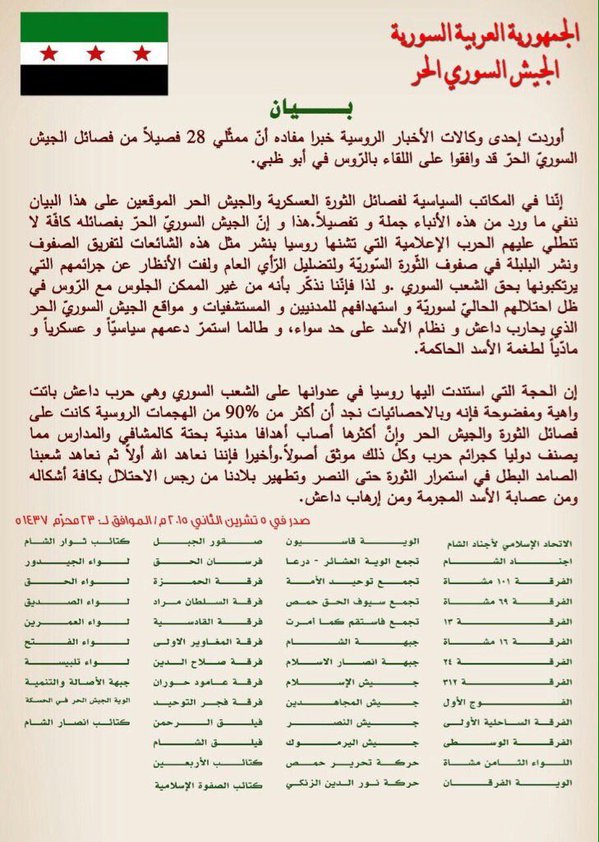 الجمهورية العربية السورية
الجيش السوري الحر
بـــــيـــــان
أوردت إحدى وكالات الأخبار الروسية خبرا مفاده أنّ ممثّلي 28 فصيلاً من فصائل الجيش
السوريّ الحرّ قد وافقوا على اللقاء بالرّوس في أبو ظبي.
إنّنا في المكاتب السياسية لفصائل الثورة العسكرية والجيش الحر الموقعين على هذا البيان
ننفي ما ورد من هذه الأنباء جملة و تفصيلاً.هذا و إنّ الجيش السوريّ الحرّ بفصائله كافّة لا
تنطلي عليهم الحرب الإعلامية التي تشنها روسيا بنشر مثل هذه الشائعات لتفريق الصفوف
ونشر البلبلة في صفوف الثّورة السّوريّة ولتضليل الرّأي العام ولفت الأنظار عن جرائمهم التي
يرتكبونها بحق الشعب السوري .و لذا فإنّنا نذكّر بأنه من غير الممكن الجلوس مع الرّوس في
ظل احتلالهم الحاليّ لسوريّة و استهدافهم للمدنيين و المستشفيات و مواقع الجيش السوريّ الحر
الذي يحارب داعش و نظام الأسد على حد سواء، و طالما استمرّ دعمهم سياسيّاً و عسكرياً و
مادّياً لطغمة الأسد الحاكمة.
إن الحجة التي استندت اليها روسيا في عدوانها على الشعب السوري وهي حرب داعش باتت
واهية ومفضوحة فإنه وبالاحصائيات نجد أن أكثر من 90% من الهجمات الروسية كانت على
فصائل الثورة والجيش الحر وإنَّ أكثرها أصاب أهدافا مدنية بحتة كالمشافي والمدارس مما
يصنف دوليا كجرائم حرب وكل ذلك موثق أصولاً.وأخيرا فإننا نعاهد الله أولاً ثم نعاهد شعبنا
الصامد البطل في استمرار الثورة حتى النصر وتطهير بلادنا من رجس الاحتلال بكافة أشكاله
ومن عصابة الأسد المجرمة ومن إرهاب داعش.
صدر في ٥ تشرين الثاني ٢٠١٥ م/ الموافق لـ: ٢٣ محرّم ١٤٣٧ ه
الاتحاد الإسلامي لأجناد الشام
اجناد الشام
الفرقة ١٠١ مشاة
الفرقة ٦٩ مشاة
الفرقة ١٣
الفرقة ١٦ مشاة
الفرقة ٢٤
الفرقة ٣١٢
الفوج الأول
الفرقة الساحلية الأولى
الفرقة الوسطى
اللواء الثامن مشاة
الوية الفرقان
الوية قاسيون
تجمع الوية العشائر - درعا
تجمع توحيد الأمة
تجمع سيوف الحق حمص
تجمع فاستقم كما امرت
جبهة الشام
جبهة انصار الاسلام
جيش الإسلام
جيش المجاهدين
جيش النصر
جيش اليرموك
حركة تحرير حمص
حركة نور الدين الزنكي
صقور الجبل
فرسان الحق
فرقة الحمزة
فرقة السلطان مراد
فرقة القادسية
فرقة المغاوير الاولى
فرقة صلاح الدين
فرقة عامود حوران
فرقة فجر التوحيد
فيلق الرحمن
فيلق الشام
كتائب الأربعين
كتائب الصفوة الإسلامية
كتائب ثوار الشام
لواء الجيدور
لواء الحق
لواء الصديق
لواء العمرين
لواء الفتح
لواء تلبيسة
جبهة الأصالة والتنمية
الوية الجيش الحر في الحسكة
كتائب انصار الشام